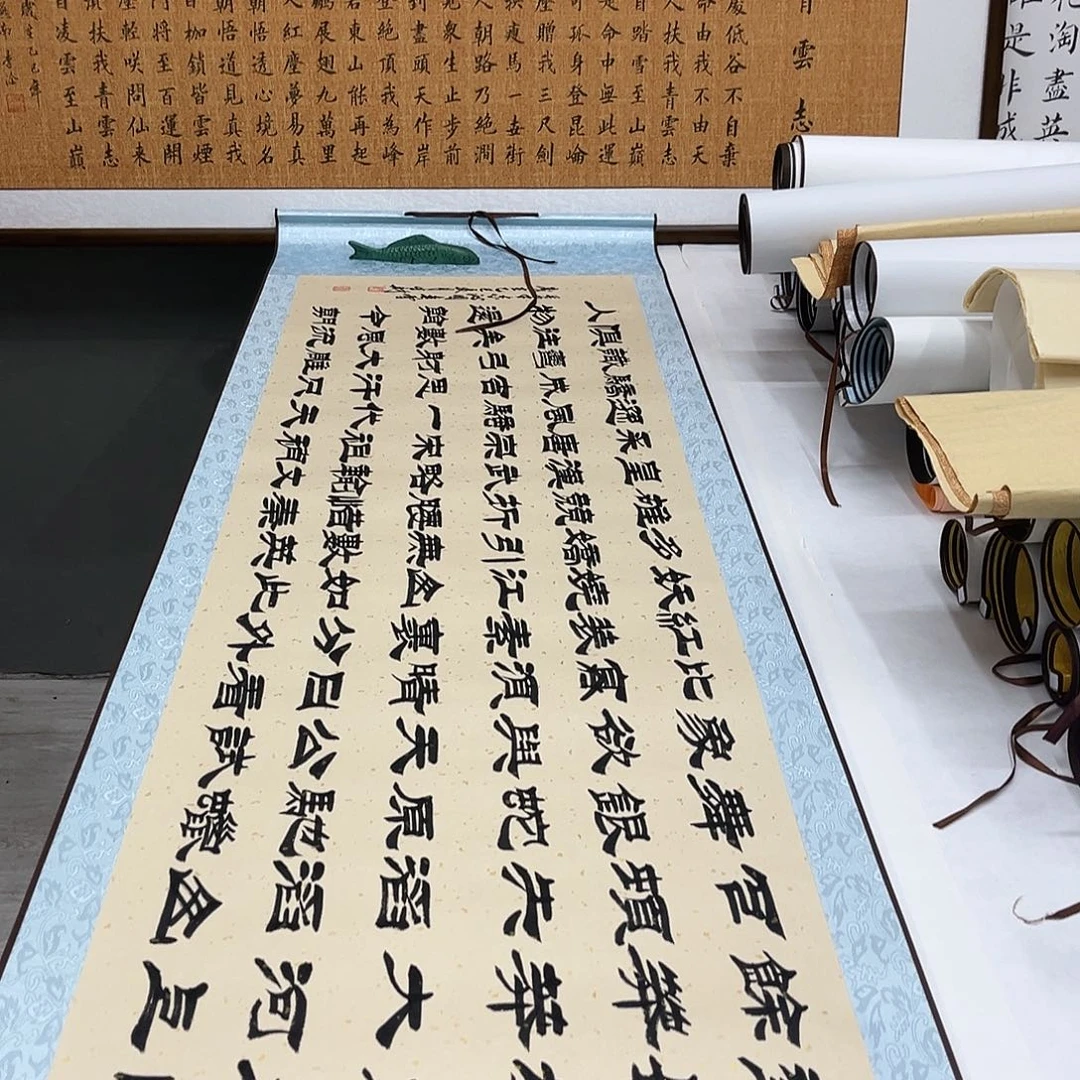 花淘盡英
是非成
青雲志
低谷不自棄
命由我不由天
人扶我青雲志
自踏雪至山巔
是命中無此運
可孤身登昆崙
塵贈我三尺劍
瘦馬一壺街
人朝路乃絕澗
見衆生止步前
到盡頭天作岸
登絕頂我為峰
若東山能再起
鵬展翅九萬里
丈紅塵夢易真
朝悟道見真我
朝悟透心境名
日枷鎖皆雲煙
門將至百運開
塵輕咲問仙來
須扶我青雲志
自凌雲至山巔
餘莽莽大河上
下頓失滔滔山
舞銀蛇原馳蠟
象欲與天公試
比高須晴日看
紅裝素裹分外
妖嬈江山如此
多嬌引無數英
雄競折腰惜秦
皇漢武略輸文
采唐宗宋祖稍
遜風騷一代天
驕成吉思汗只
識彎弓射大雕
俱往矣數風流
人物還看今朝